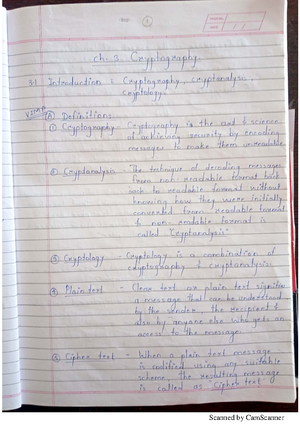 1
ch-3. Cryptography.
3.1 Introduction : Cryptography, cryptanalysis,
cryptology
V.IMP (A) Definitions
① Cryptography - Cryptography is the art & science
of achieving security by encoding
messages to make them unreadable.
② Cryptanalysis - The technique of decoding messages
from non-readable format back
back to readable format without
knowing how they were initially
converted from readable format
to non-readable format is
called "Cryptanalysis"
③ Cryptology - Cryptology is a combination of
cryptography & cryptanalysis
④ Plain text - Clear text or plain text signifies
a message that can be understood
by the sender, the recipient &
also by anyone else who gets an
access to the message.
⑤ Cipher text - When a plain text message
is codified using any suitable
scheme, the resulting message
is called as 'Cipher text'
Scanned by CamScanner